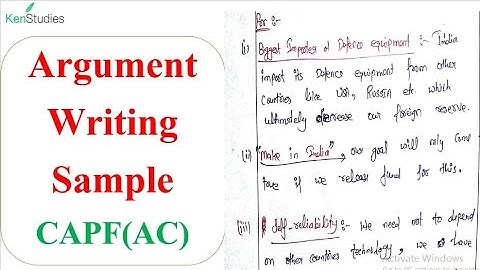 KenStudies
Argument
Writing
Sample
CAPF(AC)
For :-
(i) Biggest Importer of Defence equipment :- India
import its Defence equipment from other
Countries like USA, Russia etc which
ultimately decrease our foreign reserve.
(ii) "Make in India", our goal will only come
true if we release fund for this.
(iii) Self-reliability :- We need not to depend
on other countries technology, we have
Activate Windows